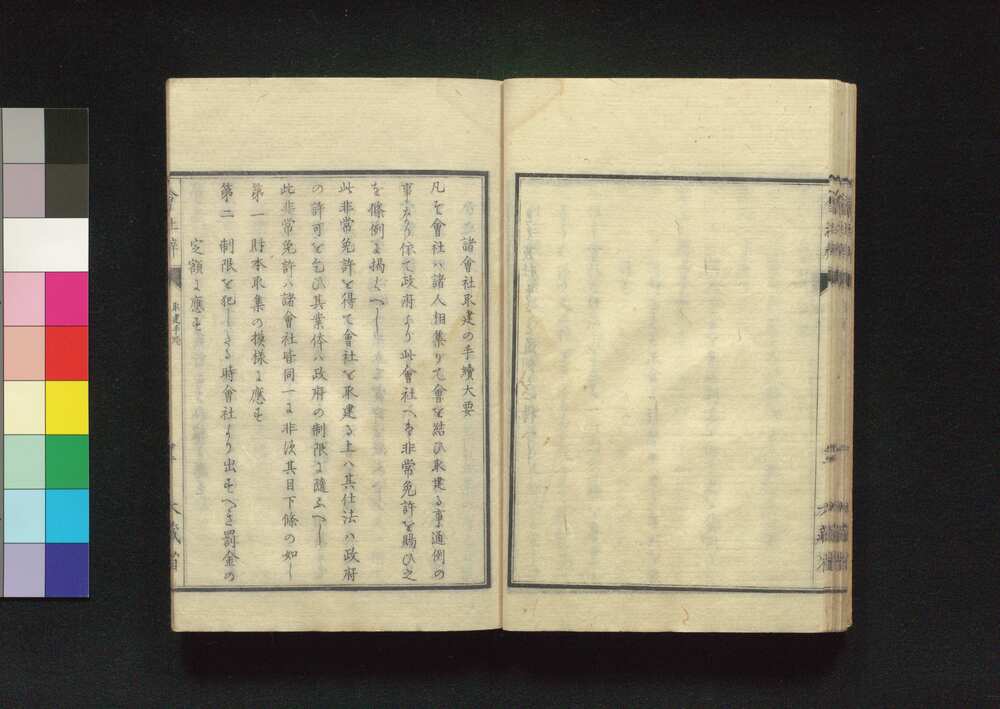 諸會社取建の手續大要
凡そ會社ハ諸人相集りて會を結ひ取建る事通例の
事なり依て政府より此會社へは非常免許を賜ひ之
を條例に掲くへし
此非常免許を得て會社を取建る上ハ其仕法ハ政府
の許可を乞ひ其業体ハ政府の制限に隨ふへし
此非常免許ハ諸會社皆同一に非次其目下條の如し
第一 財本取集の模様に應す
第二 制限を犯したる時會社より出すへき罰金の
定額に應す
會社辨
取建手續
大藏省